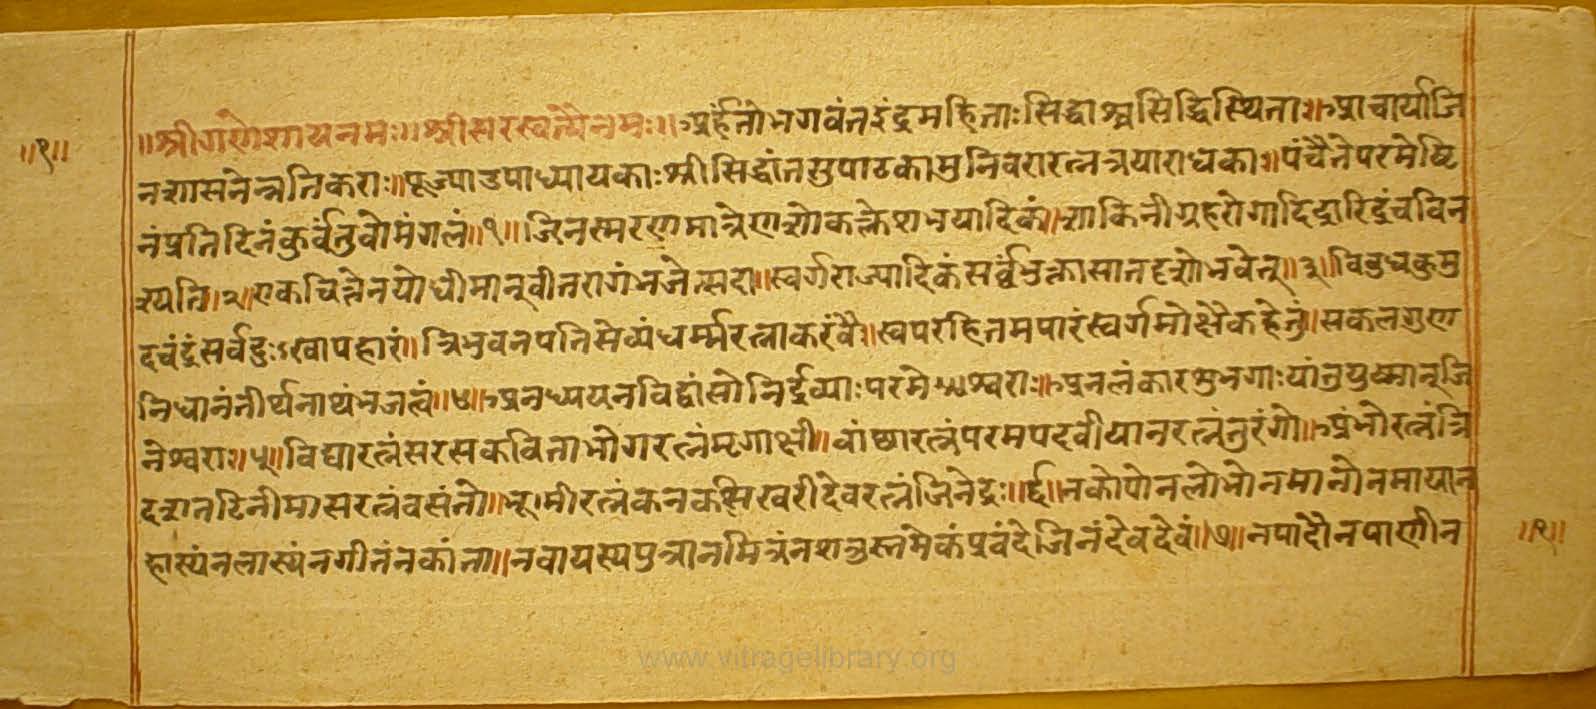 ॥१॥
॥श्रीगणेशायनमः॥श्रीसरस्वत्यैनमः॥अर्हंतोभगवंतइंद्रमहिताःसिद्धाश्चसिद्धिस्थिताः॥आचार्याजि
नशासनोन्नतिकराः॥पूज्याउपाध्यायकाःश्रीसिद्धांतसुपाठकामुनिवरारत्नत्रयाराधकाः॥पंचैतेपरमेष्टि
नंप्रतिदिनंकुर्वंतुवोमंगलं॥१॥जिनस्मरणमात्रेणशोकक्लेशभयादिकं॥शाकिनीग्रहरोगादिदारिद्रंचविन
श्यति॥२॥एकचित्तेनयोधीमान्वीतरागंभजेत्सदा॥स्वर्गराज्यादिकंसर्वंभुक्त्वासानदृशोभवेत्॥३॥विबुधकुमु
दचंद्रंसर्वदुःऽखोपहारं॥त्रिभुवनपतिसेव्यंधर्म्मरत्नाकरंवै॥स्वपरहितमपारंस्वर्गमोक्षैकहेतुं॥सकलगुण
निधानंतीर्थनाथंभजत्वं॥४॥अनध्ययनविद्वांसोनिर्द्रव्याःपरमेश्वराः॥अनलंकारशुभगाःयांतुयुष्मान्जि
नेश्वराः॥५॥विद्यारत्नंसरसकविताभोगरत्नंमृगाक्षी॥वांछारत्नंपरमपदवीयानरत्नंतुरंगो॥अंभोरत्नंत्रि
दशतटिनीमासरत्नंवसंतो॥भूमीरत्नंकनकसिखरीदेवरत्नंजिनेद्रः॥६॥नकोपोनलोभोनमानोनमायान
हास्यंनलास्यंनगीतंनकांता॥नवायस्यपुत्रानमित्रंनशत्रुस्तमेकंप्रवंदेजिनंदेवदेवं॥७॥नपादौनपाणीन
॥१॥
www.vitragelibrary.org